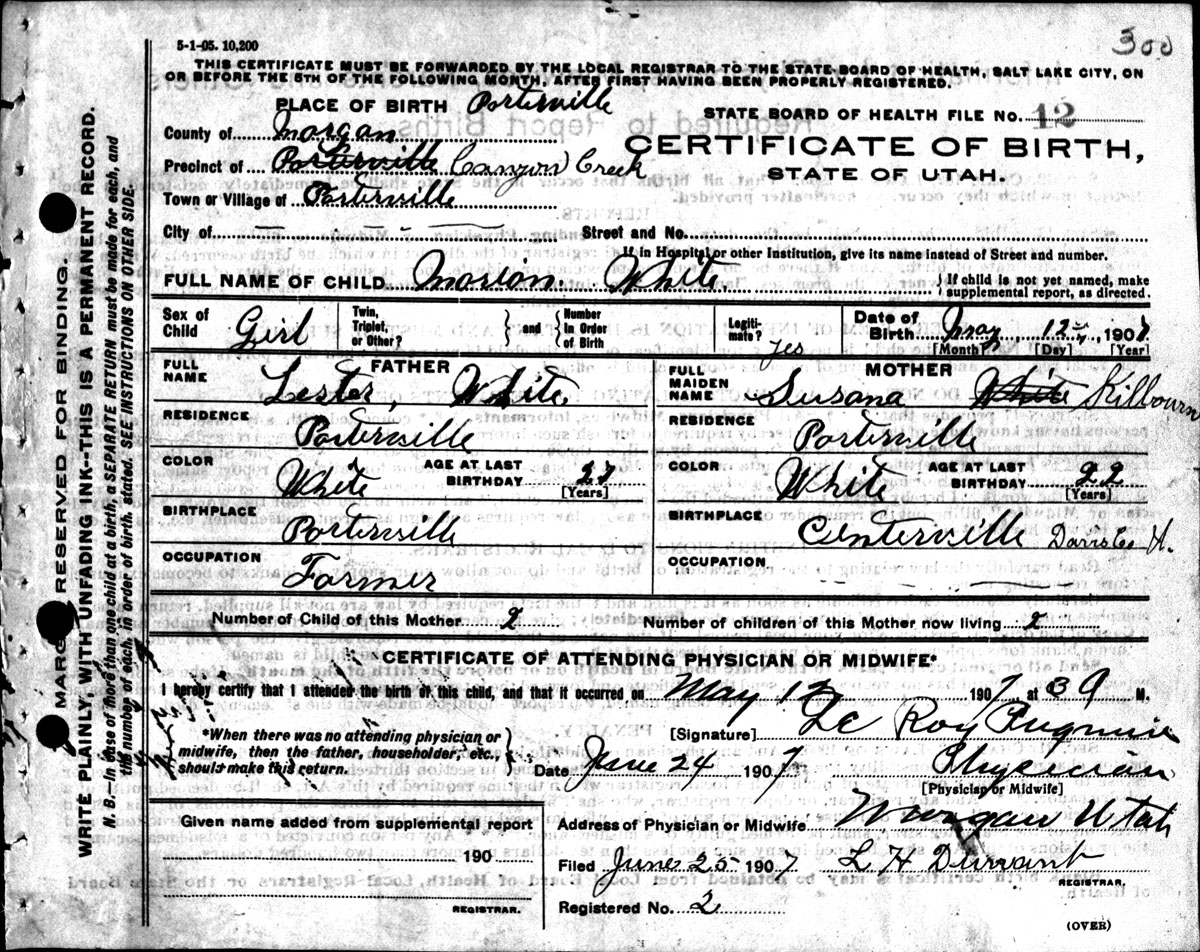 300
5-1-05. 10,200
THIS CERTIFICATE MUST BE FORWARDED BY THE LOCAL REGISTRAR TO THE STATE BOARD OF HEALTH, SALT LAKE CITY, ON
OR BEFORE THE 5TH OF THE FOLLOWING MONTH, AFTER FIRST HAVING BEEN PROPERLY REGISTERED.
PLACE OF BIRTH Porterville
STATE BOARD OF HEALTH FILE NO. 12
County of Morgan
CERTIFICATE OF BIRTH,
Precinct of Porterville Canyon Creek
STATE OF UTAH.
Town or Village of Porterville
City of Street and No.
If in Hospital or other Institution, give its name instead of Street and number.
FULL NAME OF CHILD Marion White. If child is not yet named, make supplemental report, as directed.
Sex of Child Girl Twin, Triplet, or Other? and Number In Order of Birth Legitimate? yes Date of Birth May 12, 1907
[Month] [Day] [Year]
FATHER MOTHER
FULL NAME Lester, White. FULL MAIDEN NAME Susana White Kilbourn
RESIDENCE Porterville RESIDENCE Porterville
COLOR White AGE AT LAST BIRTHDAY 27 [Years] COLOR White AGE AT LAST BIRTHDAY 22 [Years]
BIRTHPLACE Porterville BIRTHPLACE Centerville Davis Co
OCCUPATION Farmer OCCUPATION
Number of Child of this Mother 2 Number of children of this Mother now living 2
CERTIFICATE OF ATTENDING PHYSICIAN OR MIDWIFE*
I hereby certify that I attended the birth of this child, and that it occurred on May 12, 1907 at 39 M.
*When there was no attending physician or
midwife, then the father, householder, etc.,
should make this return.
[Signature] Le Roy Pugmire
Date June 24 1907 Physician
[Physician or Midwife]
Given name added from supplemental report
190
REGISTRAR.
Address of Physician or Midwife Morgan Utah
Filed June 25 1907 L H Durrant
REGISTRAR.
Registered No. 2
(OVER)
MARGIN RESERVED FOR BINDING.
WRITE PLAINLY, WITH UNFADING INK--THIS IS A PERMANENT RECORD.
N. B.--In case of more than one child at a birth, a SEPARATE RETURN must be made for each, and
the number of each, in order of birth, stated. SEE INSTRUCTIONS ON OTHER SIDE.